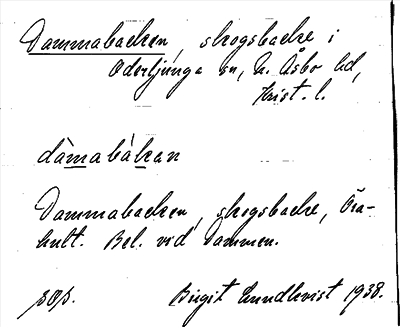 Dammabacken, skogsbacke i
Oderljunga sn, N. Åsbo hd,
Krist. l.
dàmabàkan
Dammabacken, skogsbacke, Öra-
hult. Bel. vid Dammen.
Birgit Lundkvist 1938.